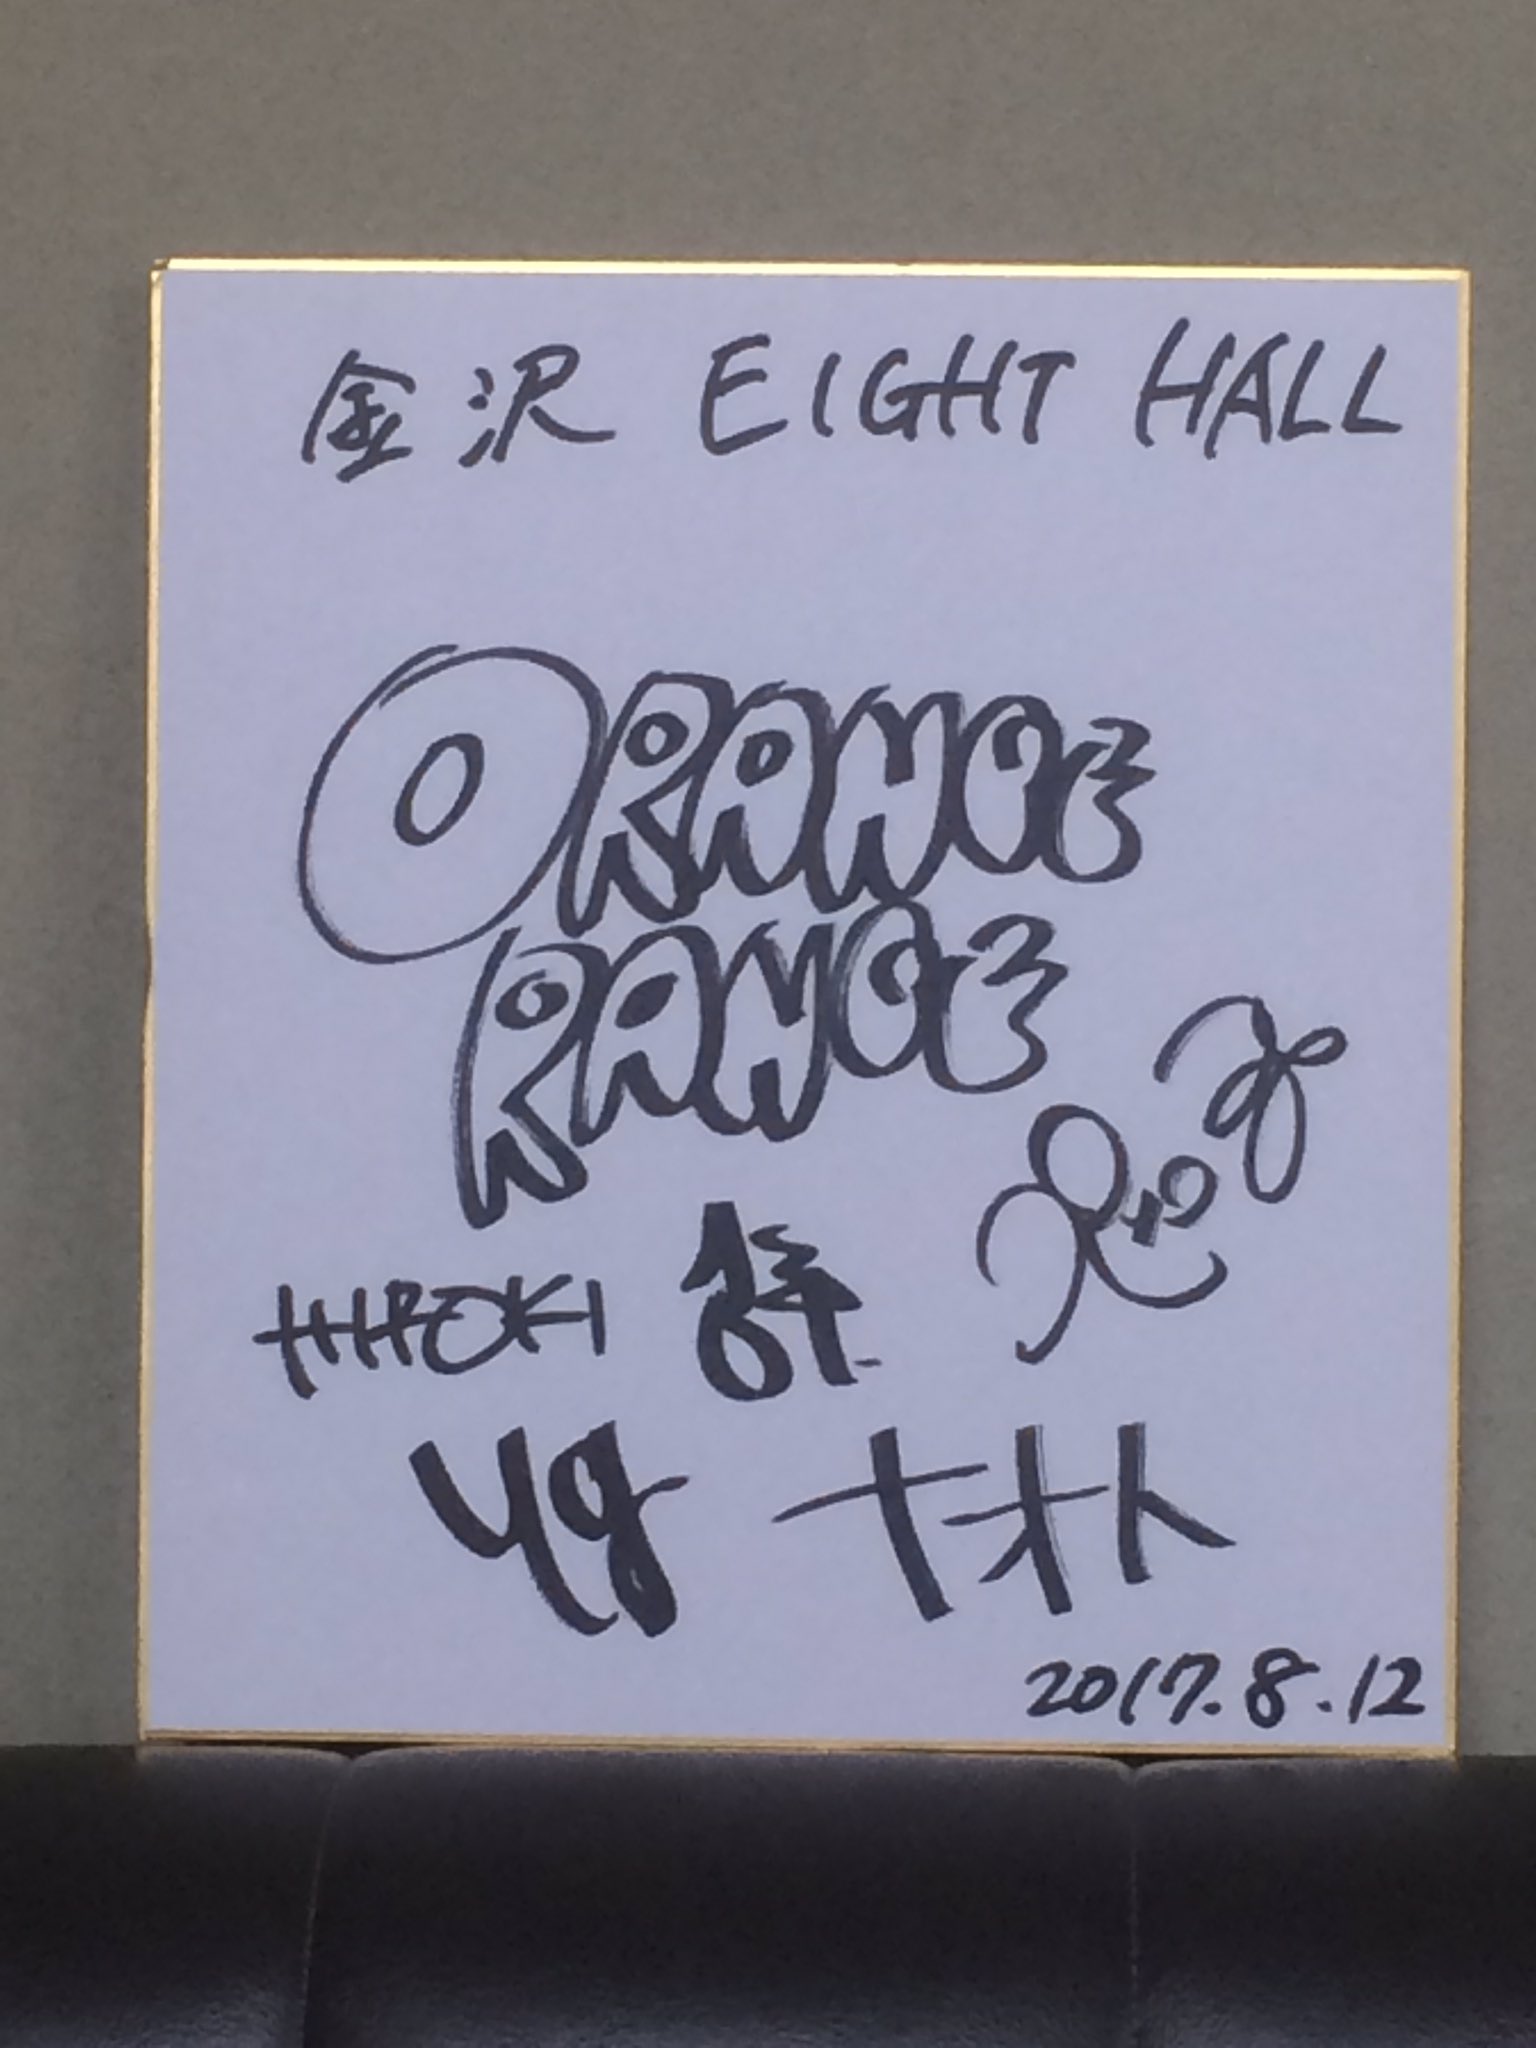 金沢 EIGHT HALL
ORANGE
RANGE
HIROKI
ナオト
2017.8.12